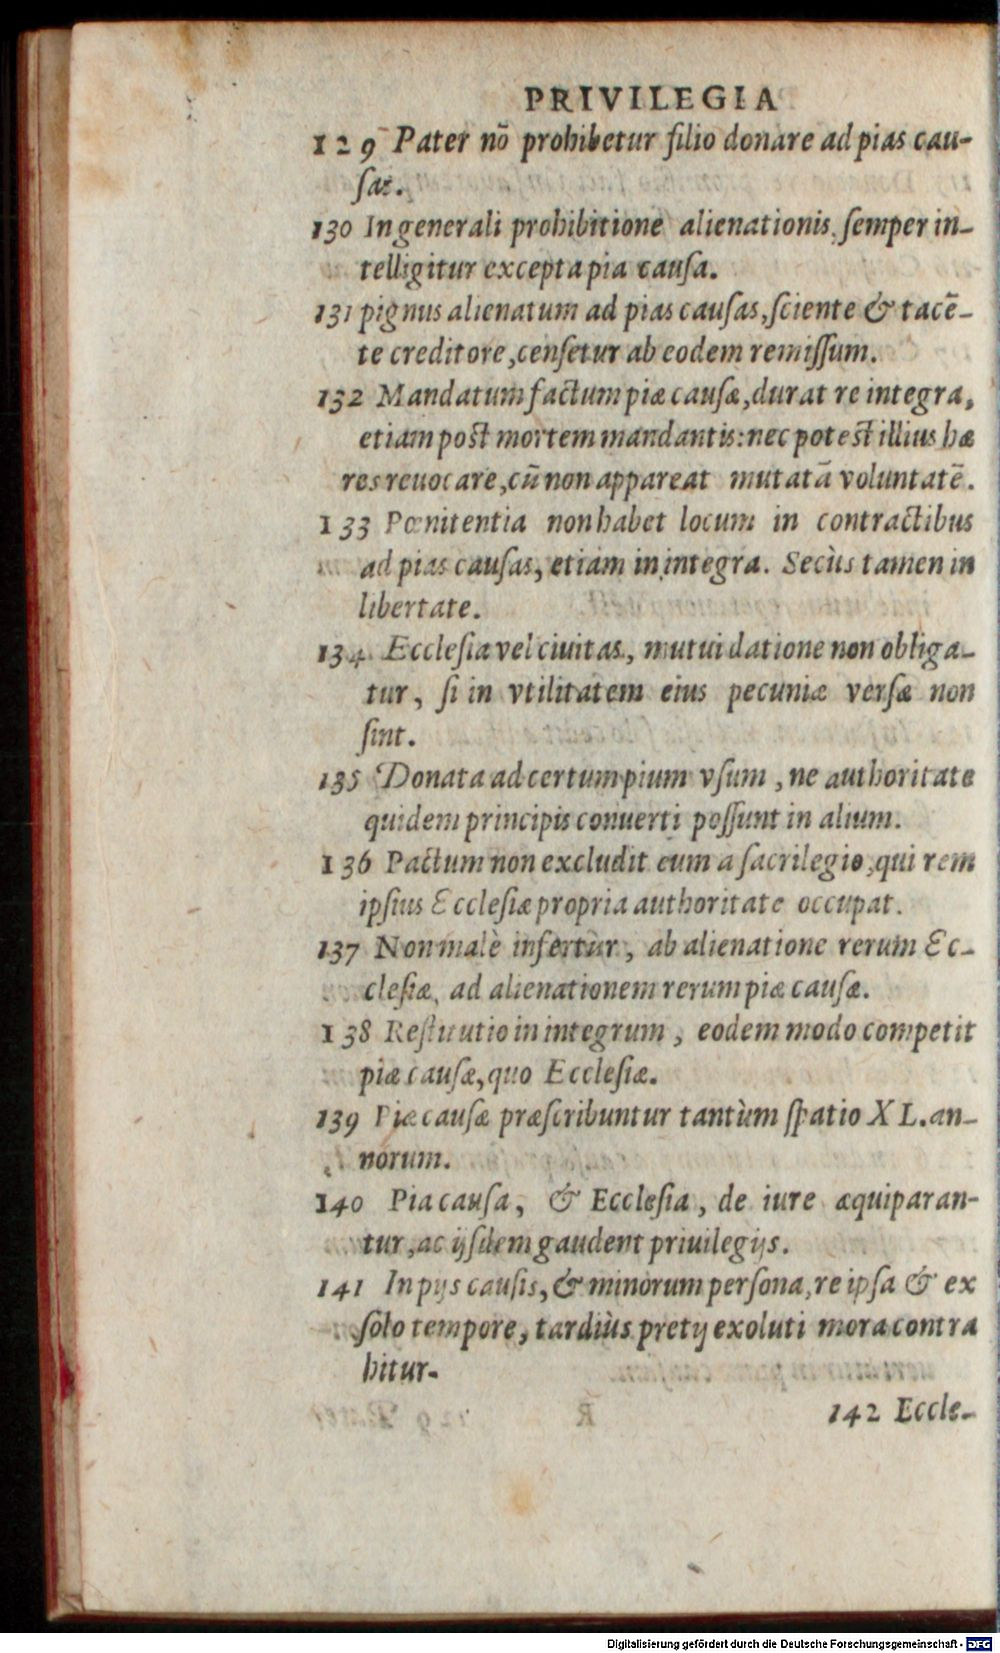 PRIVILEGIA
129 Pater nō prohibetur filio donare ad pias cau-
sas.
130 In generali prohibitione alienationis, semper in-
telligitur excepta pia causa.
131 pignus alienatum ad pias causas, sciente & tacē-
te creditore, censetur ab eodem remissum.
132 Mandatum factum piæ causæ, durat re integra,
etiam post mortem mandantis: nec potest illius hæ
res reuocare, cū non appareat mutatā voluntatē.
133 Pœnitentia non habet locum in contractibus
ad pias causas, etiam in integra. Secùs tamen in
libertate.
134 Ecclesia vel ciuitas, mutui datione non obliga-
tur, si in vtilitatem eius pecuniæ versæ non
sint.
135 Donata ad certum pium vsum, ne authoritate
quidem principis conuerti possunt in alium.
136 Pactum non excludit eum a sacrilegio, qui rem
ipsius Ecclesiæ propria authoritate occupat.
137 Non malè infertur, ab alienatione rerum Ec-
clesiæ, ad alienationem rerum piæ causæ.
138 Restitutio in integrum, eodem modo competit
piæ causæ, quo Ecclesiæ.
139 Piæ causæ præscribuntur tantùm spatio XL. an-
norum.
140 Pia causa, & Ecclesia, de iure æquiparan-
tur, ac ijsdem gaudent priuilegijs.
141 In pijs causis, & minorum persona, re ipsa & ex
solo tempore, tardiùs pretij exoluti mora contra
hitur.
142 Eccle-
Digitalisierung gefördert durch die Deutsche Forschungsgemeinschaft - DFG